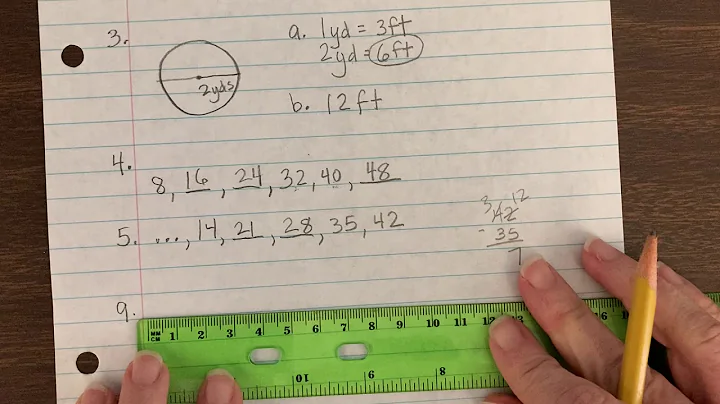 3.
2yds
a. 1yd = 3ft
2yd = 6ft
b. 12ft
4. 8, 16, 24, 32, 40, 48
5. ..., 14, 21, 28, 35, 42
3 12
42
- 35
7
9.
MM
CM
1 2 3 4 5 6 7 8 9 10 11 12 13
10 9 8